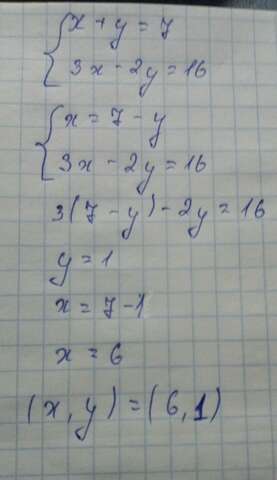 x + y = 7
3x - 2y = 16
x = 7 - y
3x - 2y = 16
3(7 - y) - 2y = 16
y = 1
x = 7 - 1
x = 6
(x, y) = (6, 1)